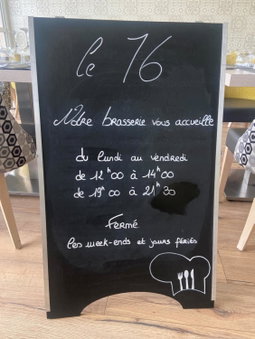 Le 16
Notre brasserie vous accueille
du lundi au vendredi
de 12h00 à 14h00
de 19h00 à 21h30
Fermé
les week-ends et jours fériés